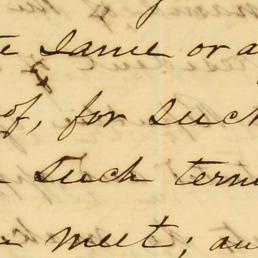 same or a
of, for such
such term
meet; an